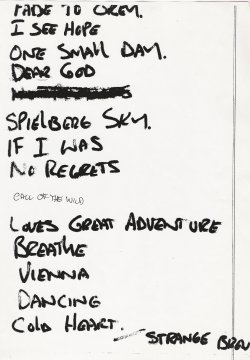 FADE TO GREY.
I SEE HOPE
ONE SMALL DAY.
DEAR GOD
SPIELBERG SKY.
IF I WAS
NO REGRETS
CALL OF THE WILD
LOVES GREAT ADVENTURE
BREATHE
VIENNA
DANCING
COLD HEART.
STRANGE BREW